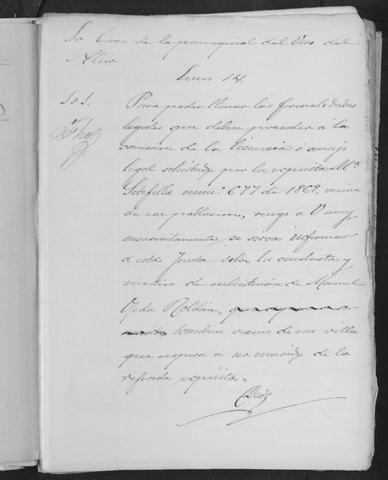 Sr Cura de la parroquial del Viso del
Alcor
Enero 14.
Para poder llenar las formalidades
legales que deben preceder á la
concesion de la licencia ó consejo
legal solicitado por la expósita Mª
num. 677 de 1862, vecina
de esa poblacion, ruego á V muy
encarecidamente se sirva informar
á esta Junta sobre la conducta y
medios de subsistencia de Manuel
Roldan,
tambien vecino de esa villa
que aspira á ser marido de la
referida expósita.